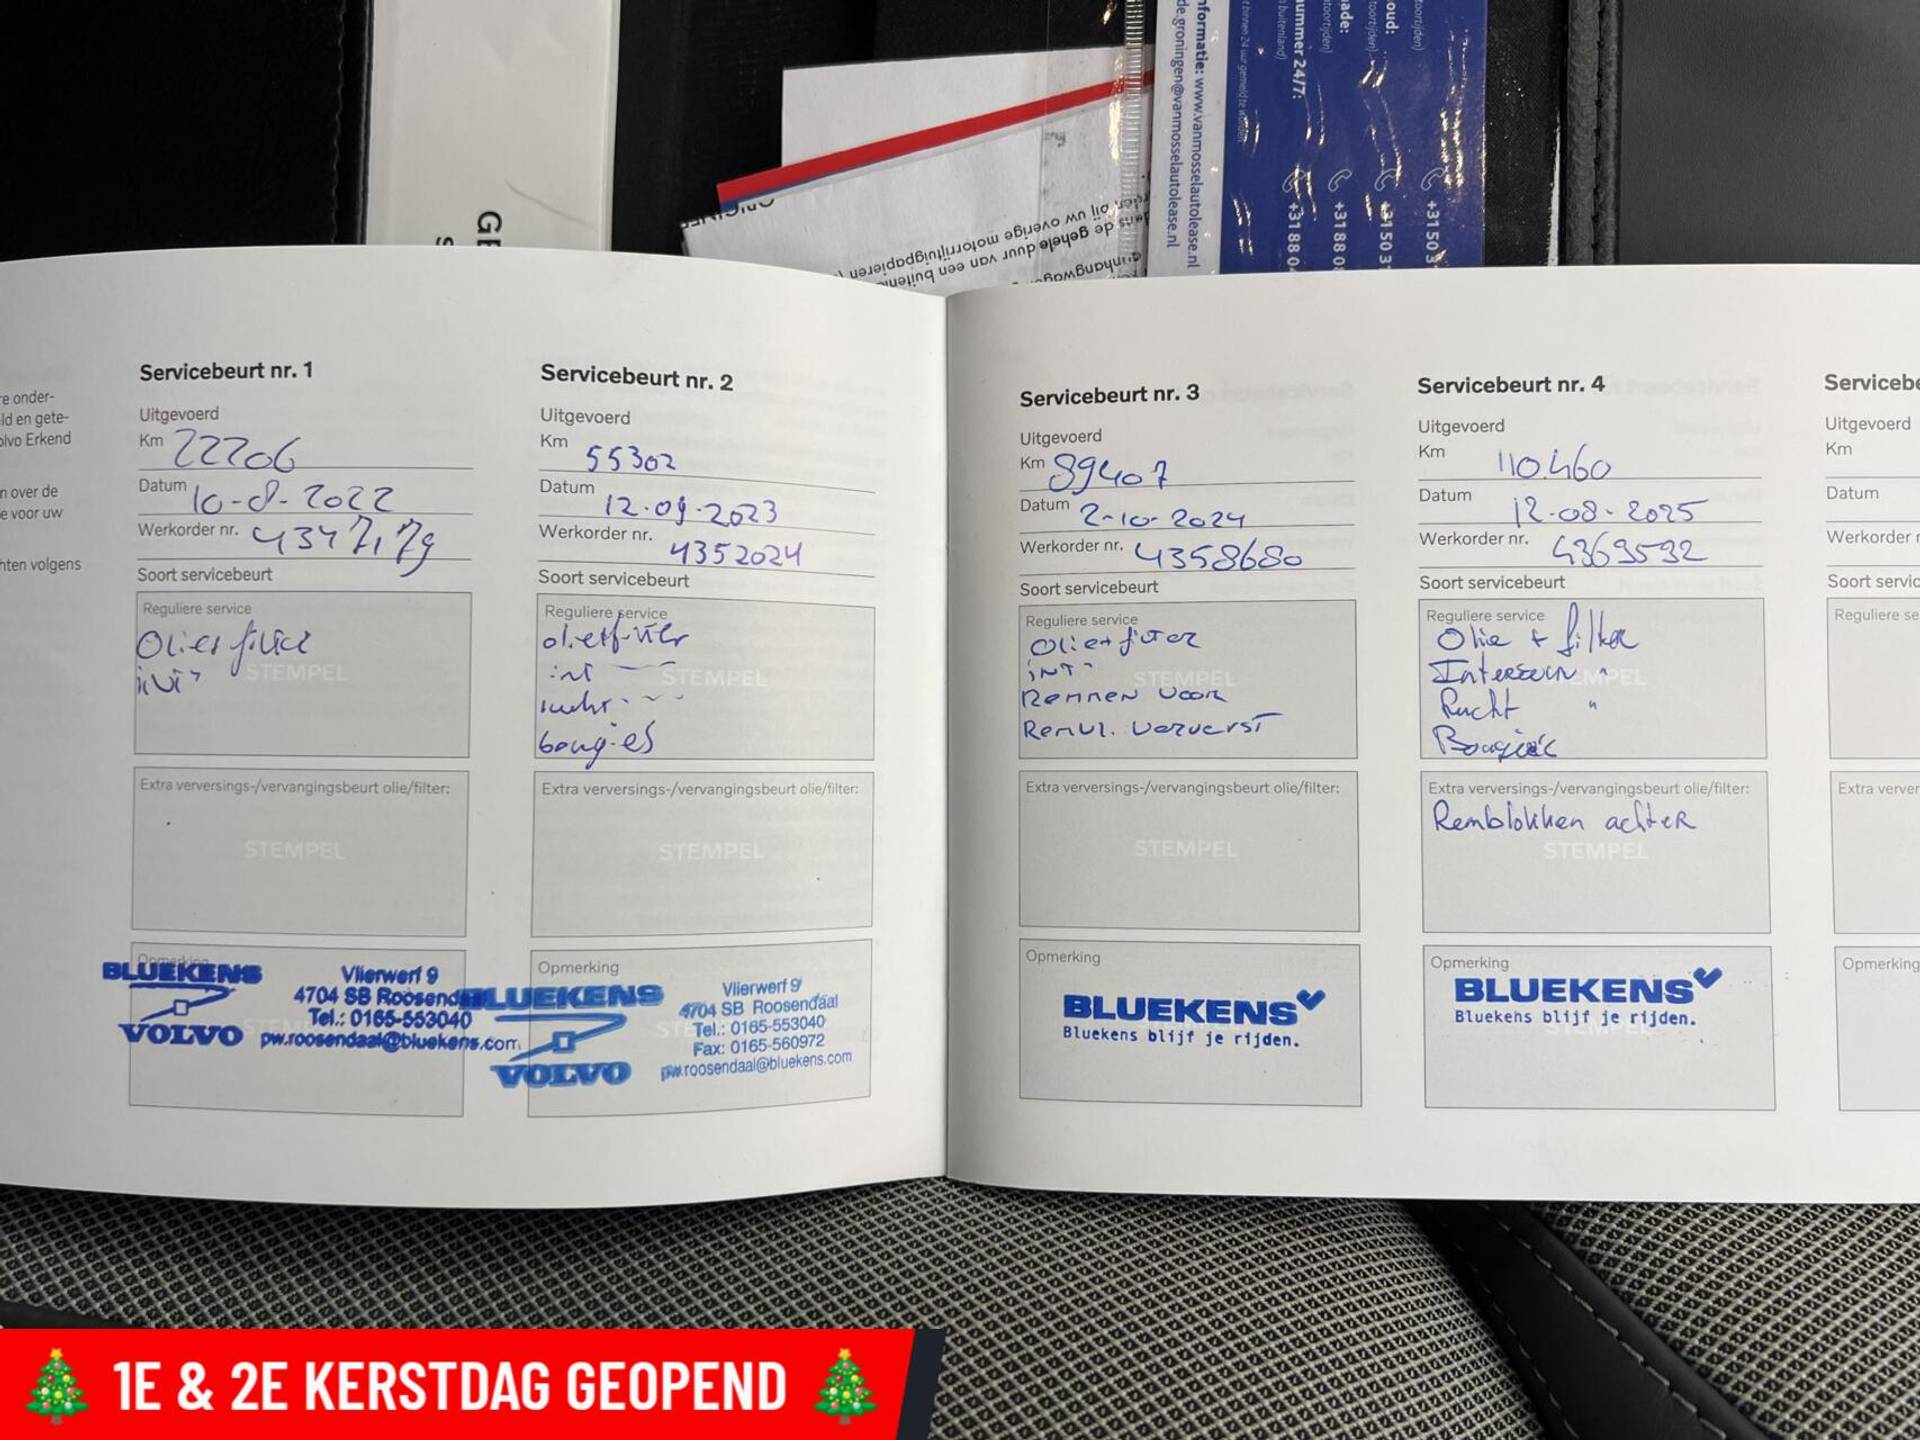 nformatie: www.vanmosselautolease.nl
de.groningen@vanmosselautolease.nl
nummer 24/7:
+3188 0
+3188 0
+3150 3
+3150 3
rden bij uw overige motorrijtuigpapieren
dens de gehele duur van een buitenl
GE
S
re onder-
ld en gete-
olvo Erkend
n over de
e voor uw
hten volgens
Servicebeurt nr. 1
Uitgevoerd
Km 22706
Datum 10-8-2022
Werkorder nr.
Soort servicebeurt
Reguliere service
STEMPEL
Extra verversings-/vervangingsbeurt olie/filter:
STEMPEL
Opmerking
BLUEKENS
VOLVO
Vlierwerf 9
4704 SB Roosendaal
Tel.: 0165-553040
pw.roosendaal@bluekens.com
Servicebeurt nr. 2
Uitgevoerd
Km 55302
Datum 12-09-2023
Werkorder nr. 4352024
Soort servicebeurt
Reguliere service
int
STEMPEL
bougies
Extra verversings-/vervangingsbeurt olie/filter:
STEMPEL
Opmerking
BLUEKENS
VOLVO
Vlierwerf 9
4704 SB Roosendaal
Tel.: 0165-553040
Fax: 0165-560972
pw.roosendaal@bluekens.com
Servicebeurt nr. 3
Uitgevoerd
Km 89407
Datum 2-10-2024
Werkorder nr. 4358680
Soort servicebeurt
Reguliere service
INT
STEMPEL
Remmen voor
Remvl. ververst
Extra verversings-/vervangingsbeurt olie/filter:
STEMPEL
Opmerking
BLUEKENS
Bluekens blijf je rijden.
Servicebeurt nr. 4
Uitgevoerd
Km 110.460
Datum 12-08-2025
Werkorder nr. 4363532
Soort servicebeurt
Reguliere service
Olie + filter
Interieur "
STEMPEL
Lucht "
Bougie's
Extra verversings-/vervangingsbeurt olie/filter:
Remblokken achter
STEMPEL
Opmerking
BLUEKENS
Bluekens blijf je rijden.
Serviceb
Uitgevoerd
Km
Datum
Werkorder
Soort servic
Reguliere se
Extra verver
Opmerking
1E & 2E KERSTDAG GEOPEND